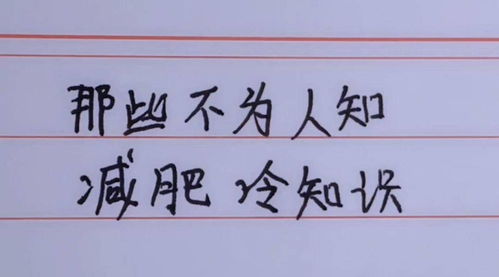 那些不为人知
减肥冷知识